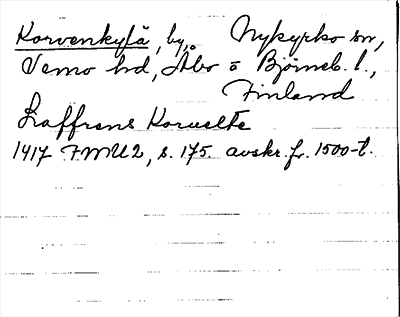 Korvenkylä, by, Nykyrko sn,
Vemo hd, Åbo o Björneb. l.,
Finland
Staffrens Korvelte
1417 FMU2, s. 175. avskr. fr. 1500-t.